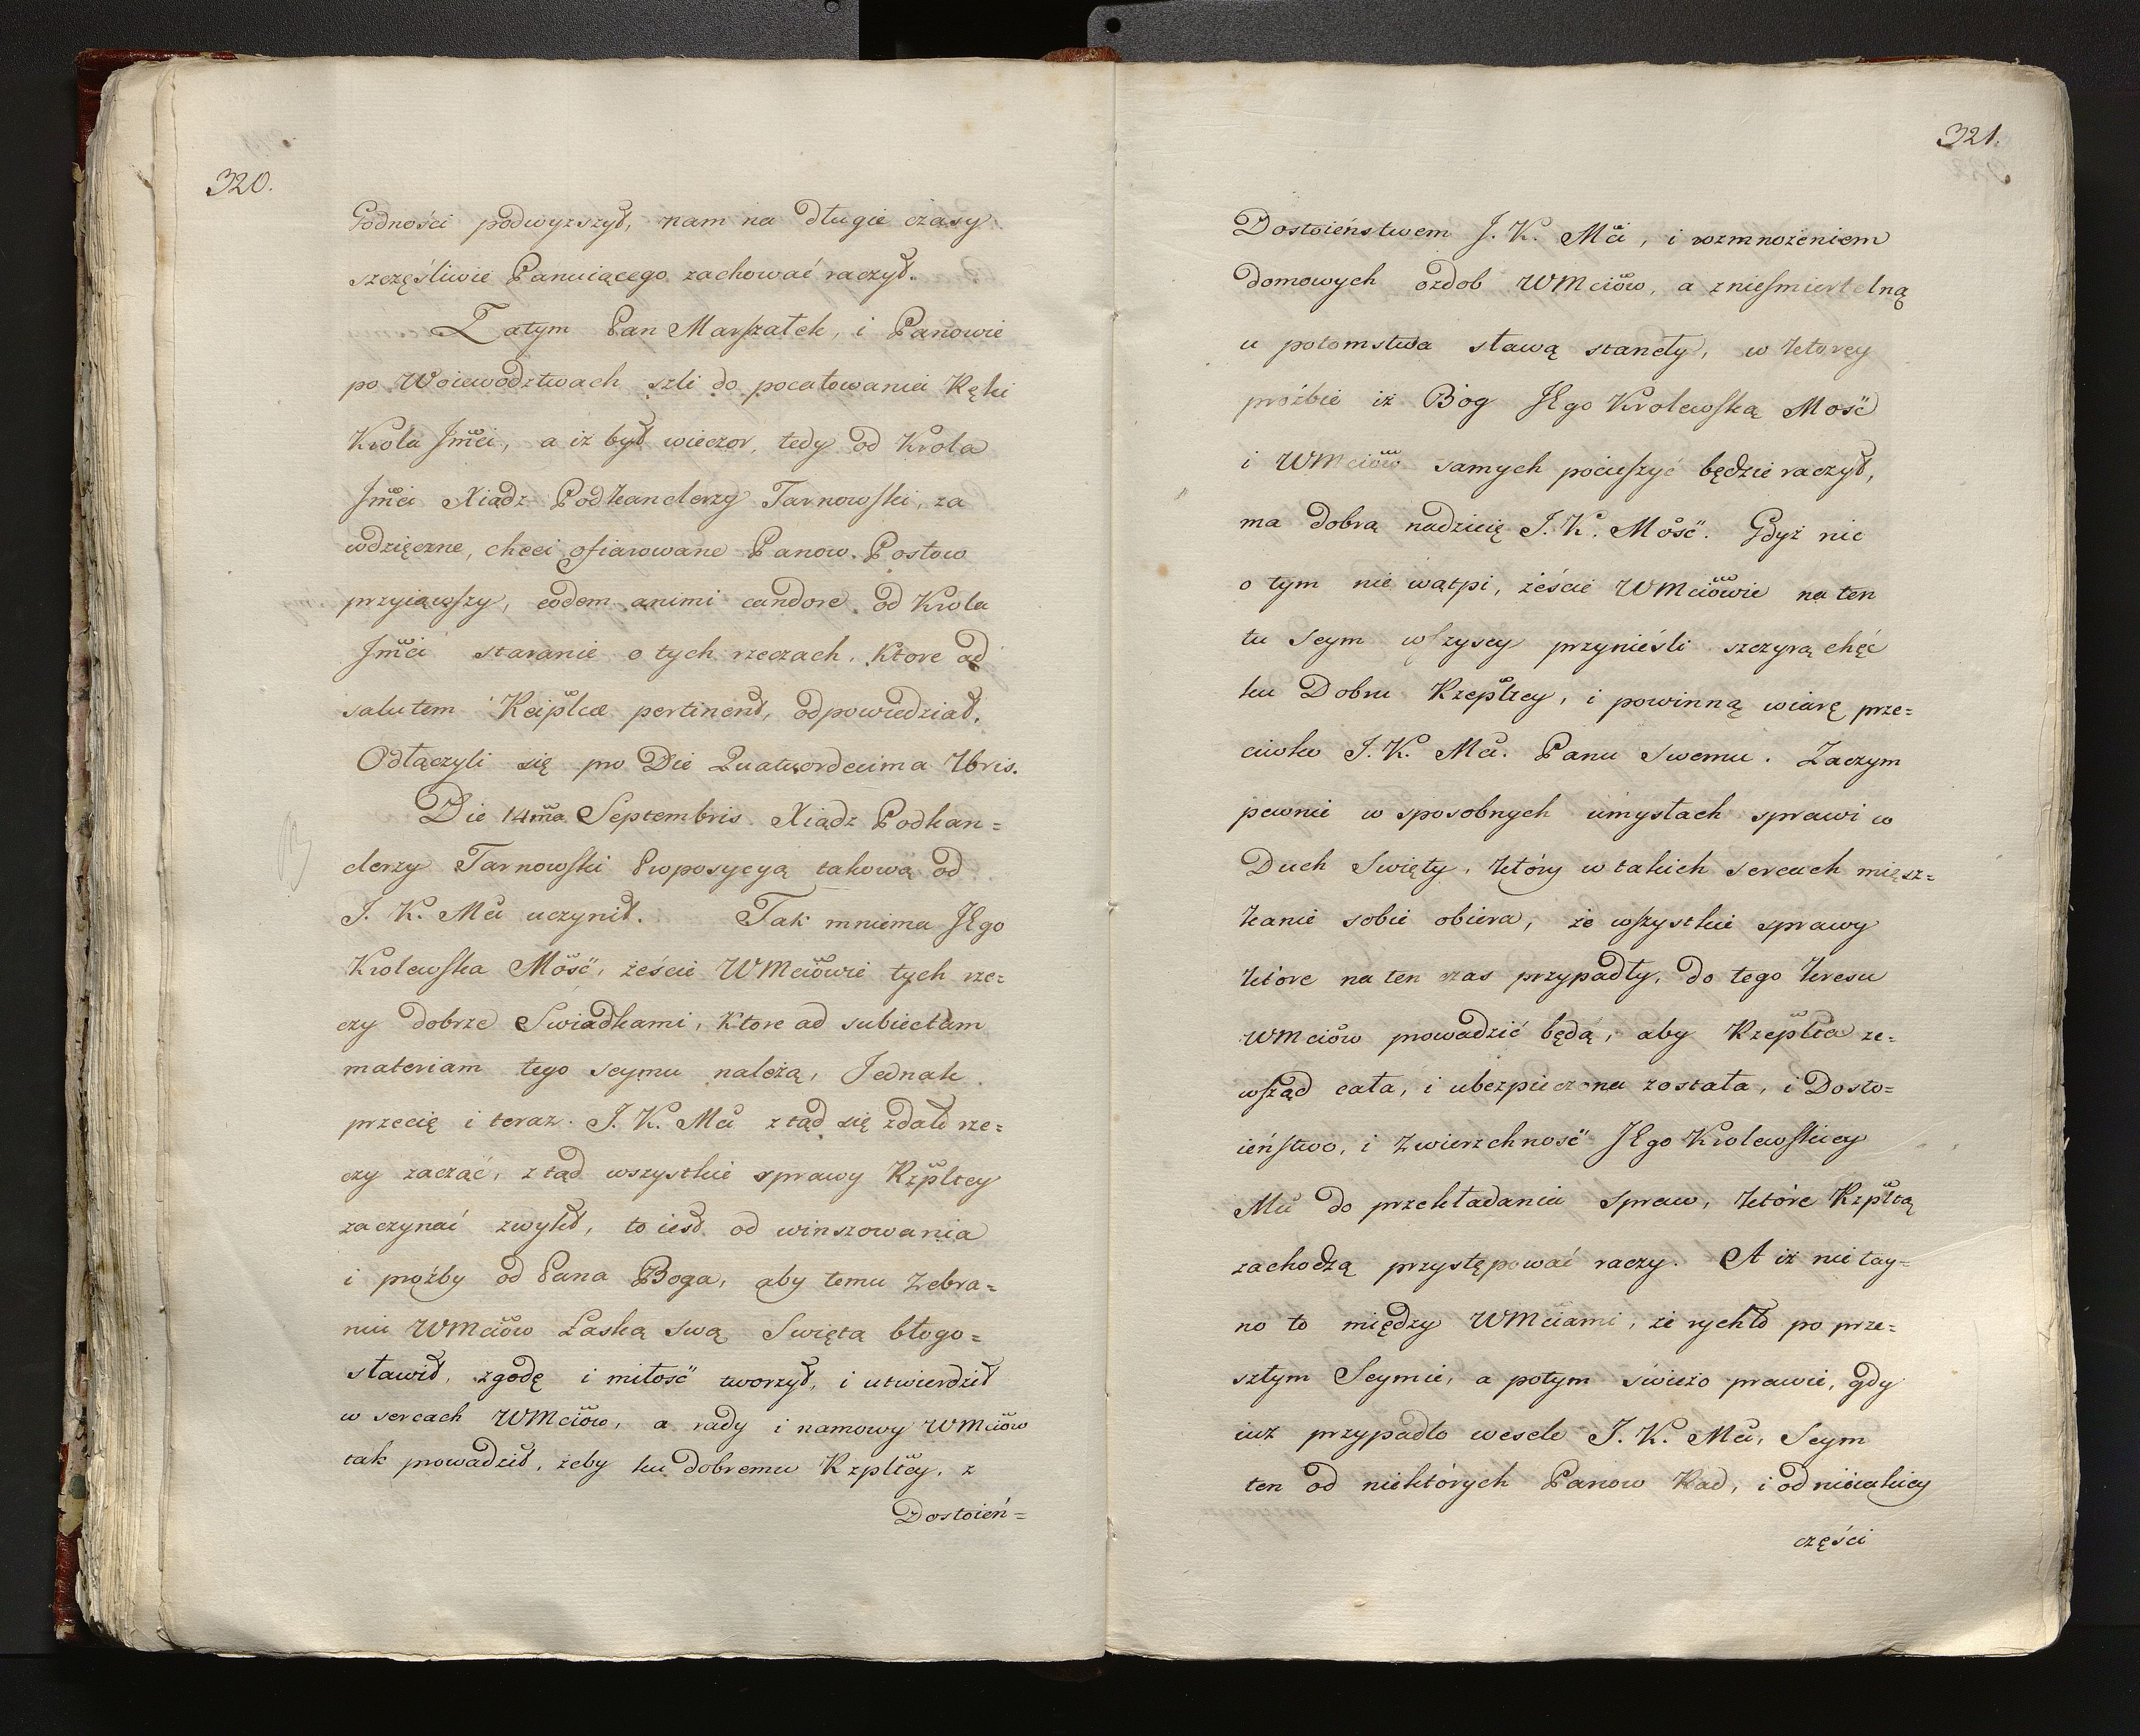 320.
Godności podwyzszył, nam na długie czasy
szczęśliwie Panuiącego zachować raczył.
Zatym Pan Marszałek, i Panowie
po Woiewodztwach szli do pocałowania Ręki
Krola Jmci, a iz był wieczor, tedy od Krola
Jmci Xiądz Podkanclerzy Tarnowski, za
wdzięczne, chęci ofiarowane Panow Posłow
przyiąwszy, eodem animi candore od Krola
Jmci staranie o tych rzeczach, Ktore ad
salutem Reiplcæ pertinent, odpowiedział.
Odłączyli się pro Die Quatuordecima 7bris.
Die 14ma Septembris Xiądz Podkan=
clerzy Tarnowski Propozycyą takową od
J. K. Mci uczynił. Tak mniema JEgo
Krolewska Mość, żeście WMciowie tych rze=
czy dobrze Swiadkami, Ktore ad subiectam
materiam tego seymu należą, Jednak
przecię i teraz J. K. Mci ztąd się zdało rze=
czy zacząć, ztąd wszystkie sprawy Rzpltey
zaczynać zwykł, to iest od winszowania
i proźby od Pana Boga, aby temu zebra=
niu WMciow Łaską swą Swięta błogo=
sławił, zgodę i miłość tworzył, i utwierdził
w sercach WMciow, a rady i namowy WMciow
tak prowadził, żeby ku dobremu Rzpltey, z
Dostoień=
321.
Dostoieństwem J. K. Mci, i rozmnożeniem
domowych ozdob WMciow, a znieśmiertelną
u potomstwa sławą stanęły, w którey
próźbie iż Bóg JEgo Krolewską Mość
i WMciow samych pocieszyć będzie raczył,
ma dobrą nadzieię J. K. Mość. Gdyż nic
o tym nie wątpi, żeście WMciowie na ten
tu Seym wszyscy przynieśli szczyrą chęć
ku Dobru Rzepltey, i powinną wiarę prze=
ciwko J. K. Mci. Panu Swemu. Zaczym
pewnie w sposobnych umysłach sprawi to
Duch Swięty, który w takich sercach miesz=
kanie sobie obiera, że wszystkie sprawy
które na ten czas przypadły, do tego kresu
WMciow prowadzić będą, aby Rzeplta ze=
wsząd cała, i ubezpieczona została, i Dosto=
ieństwo, i Zwierzchność JEgo Krolewskiey
Mci do przekładania Spraw, które Rzpltą
zachodzą przystępować raczy. A iż nie tay=
no to między WMciami, że rychło po prze=
szłym Seymie, a potym świeżo prawie, gdy
iuż przypadło wesele J. K. Mci, Seym
ten od niektórych Panow Rad, i od nieiakiey
części